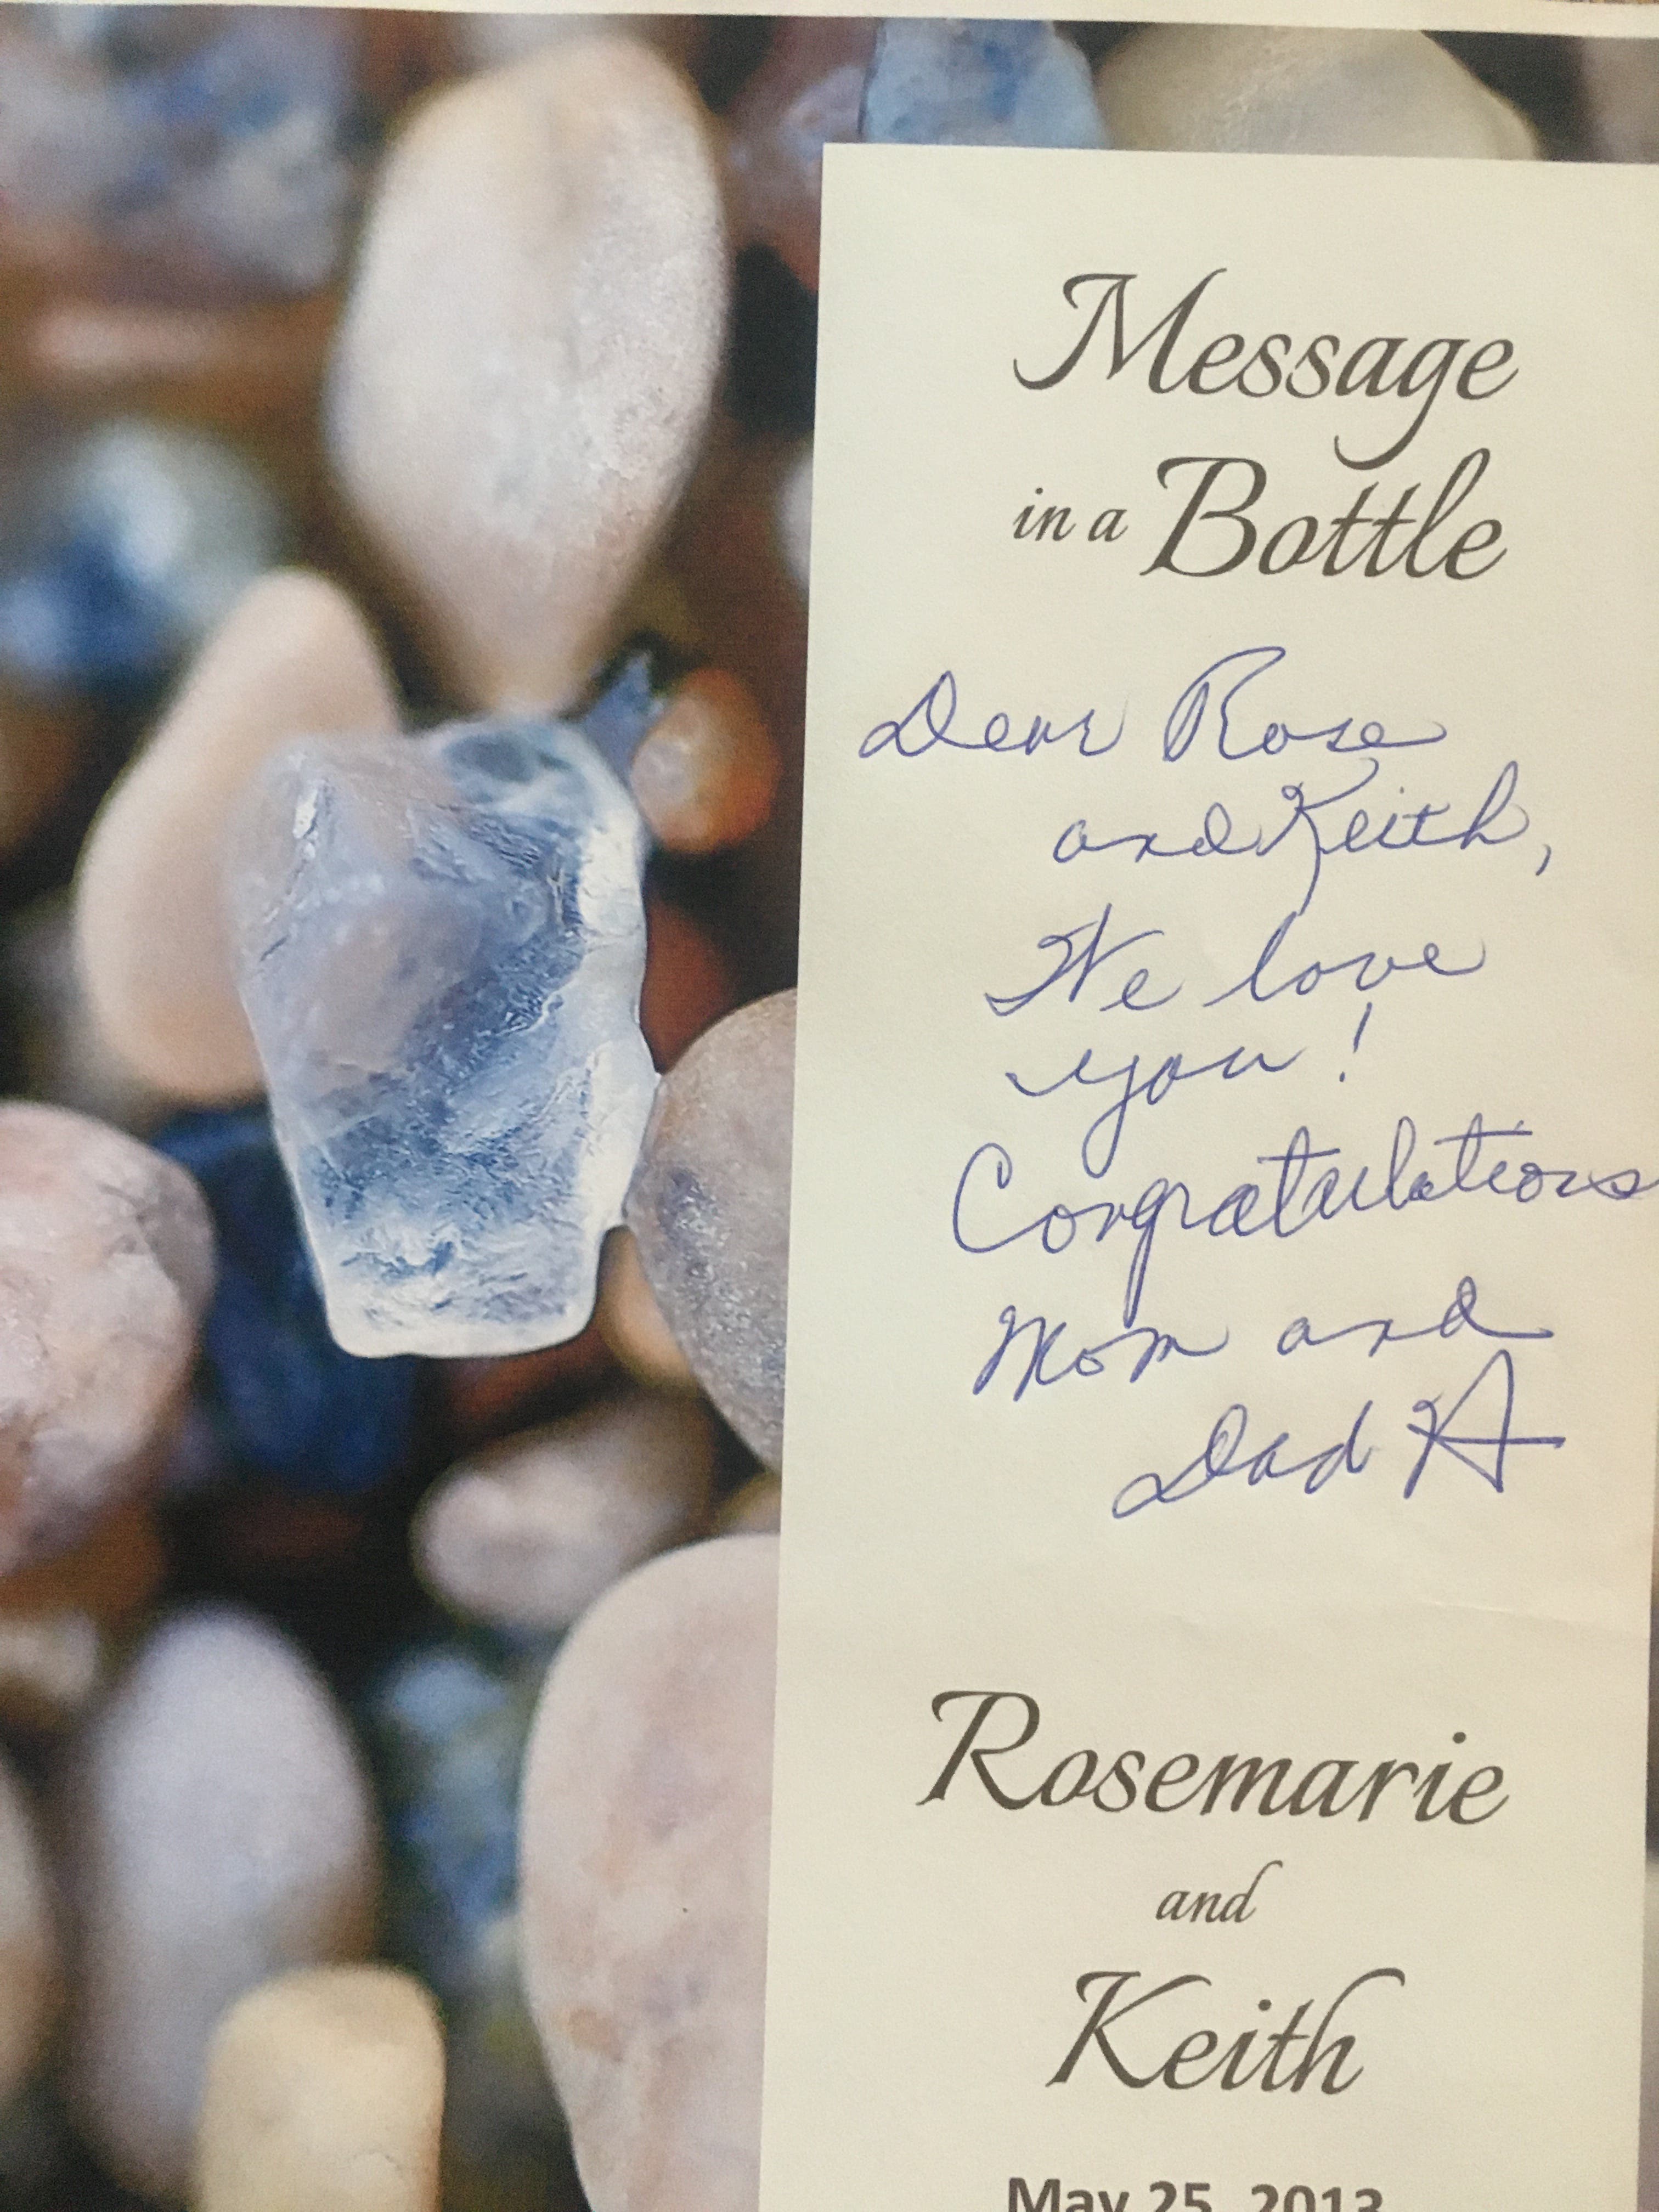 Message
in a Bottle
Dear Rose
and Keith,
We love
you!
Congratulations
Mom and
Dad A
Rosemarie
and
Keith
May 25, 2013